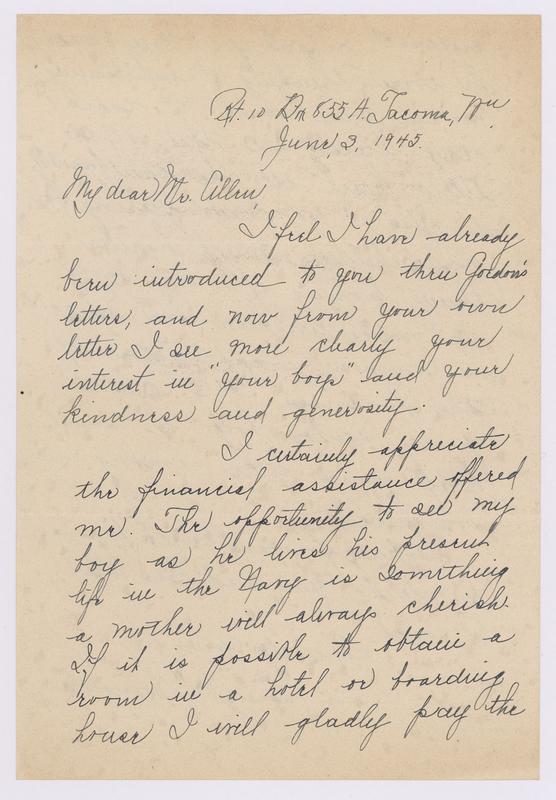 Rt. 10 Bx 855 A. Tacoma, Wn
June, 3, 1945.
My dear Mr. Allen,
I feel I have already
been introduced to you thru Gordon's
letters, and now from your own
letter I see more clearly your
interest in "your boys" and your
kindness and generosity.
I certainly appreciate
the financial assistance offered
me. The opportunity to see my
boy as he lives his present
life in the Navy is something
a mother will always cherish.
If it is possible to obtain a
room in a hotel or boarding
house I will gladly pay the